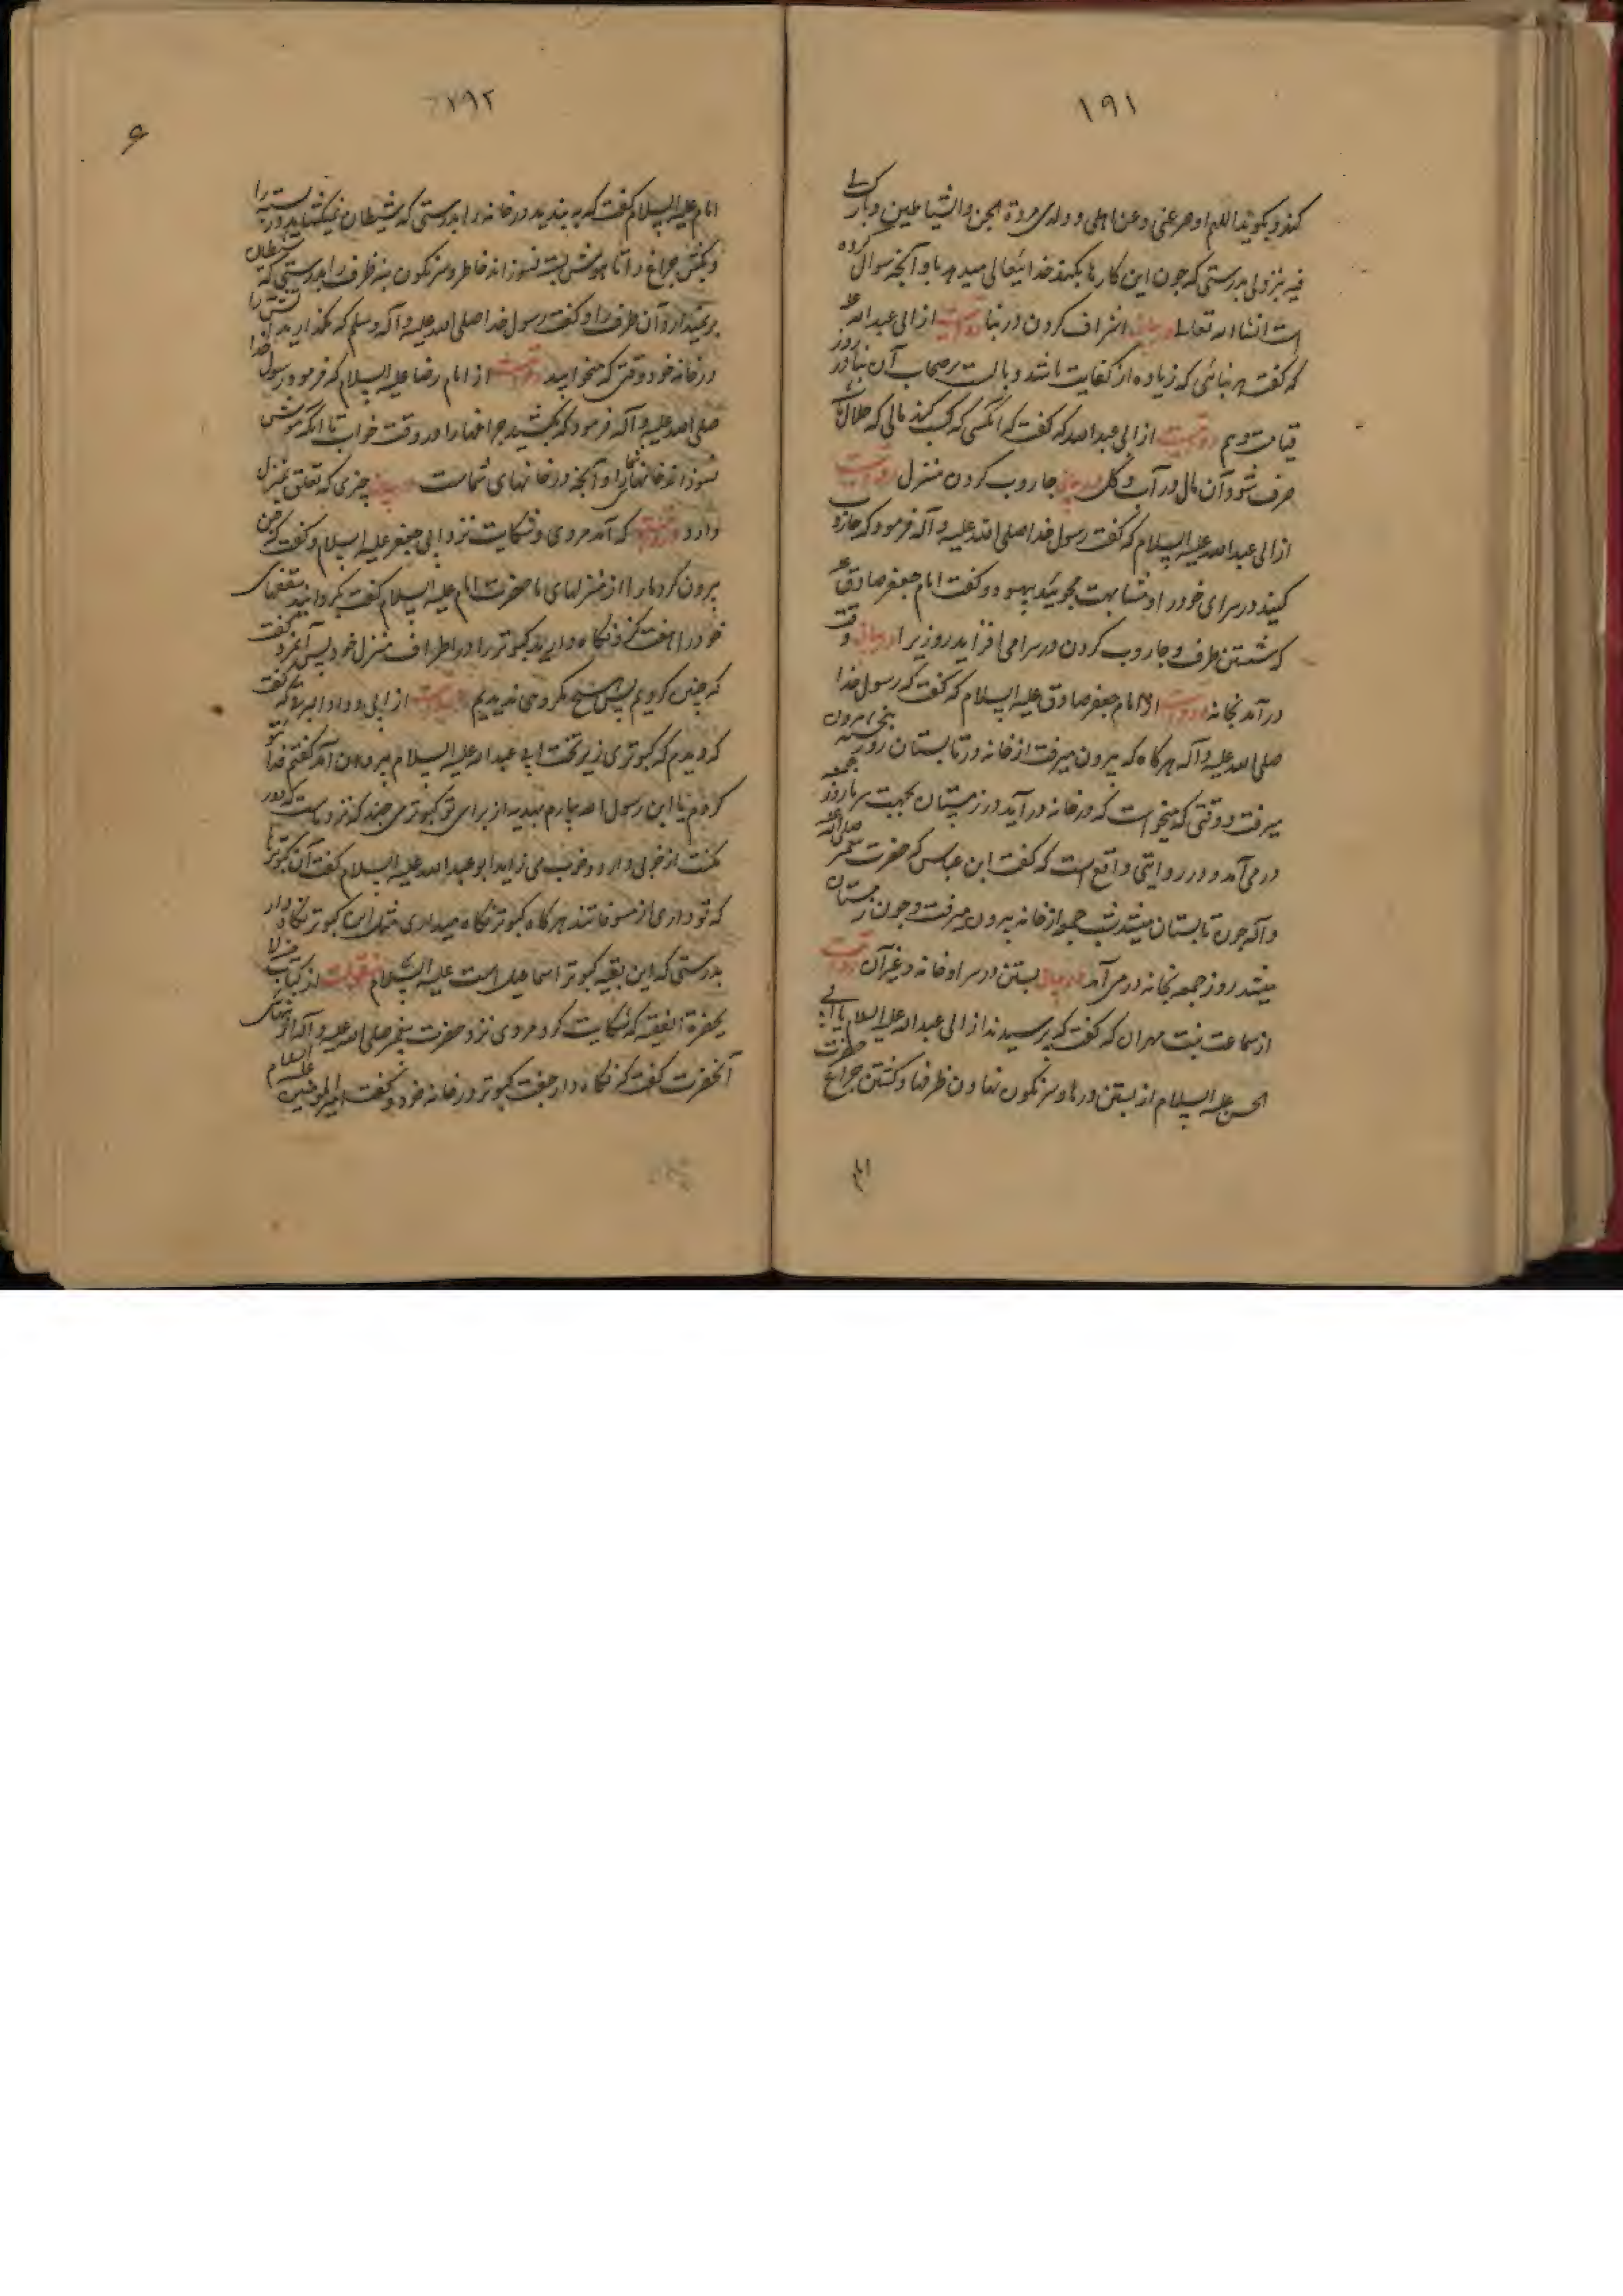 ۱۹۱
کند و بگوید اللهم ادحر عنی و عن اهلی و ولدی مردة الجن والشیاطین و بارک لی
فیه بنزولی بدرستی که چون این کارها بکند خدایتعالی میدهد باو آنچه سوال کرده
است انشاء الله تعالی در بیان اسراف کردن در بنا روایت از ابی عبدالله
که گفت هر بنائی که زیاده از کفایت باشد وبالست بر صاحب آن بنا در روز
قیامت و هم روایت از ابی عبدالله که گفت که انکسی که کسب کند مالی که حلال باشد
صرف شود آن مال در آب و گل در بیان جاروب کردن منزل روایت
از ابی عبدالله علیه السلام که گفت رسول خدا صلی الله علیه و آله فرمود که جاروب
کنید در سرای خود را و مشابهت مجوئید بیهود و گفت امام جعفر صادق
که شستن ظرف و جاروب کردن در سرا می افزاید روزی را در بیان وقت
درآمد بخانه روایت از امام جعفر صادق علیه السلام که گفت که رسول خدا
صلی الله علیه و آله هرگاه که بیرون میرفت از خانه در تابستان روز پنجشنبه بیرون
میرفت و وقتی که میخواست که در خانه درآید در زمستان بجهت سرما روز جمعه
در می آمد و در روایتی واقع است که گفت ابن عباس که حضرت پیغمبر صلی الله علیه
و آله چون تابستان میشد شب جمعه از خانه بیرون میرفت و چون زمستان
میشد روز جمعه بخانه در می آمد در بیان بستن در سرا و خانه و غیر آن روایت
از سماعت بنت مهران که گفت که پرسیدند از ابی عبدالله علیه السلام یا ابی
الحسن علیه السلام از بستن درها و سرنگون نهادن ظرفها و کشتن چراغ حضرت
۱۹۲
امام علیه السلام گفت که به بندید در خانه را بدرستی که شیطان نمیگشاید در بسته را
و بکش چراغ را تا موش بسته نسوزاند خاطر و سرنگون بنه ظرف را بدرستی که شیطان
بر نمیدارد آن ظرف را و گفت رسول خدا صلی الله علیه و آله وسلم که مگذارید آتش را
در خانه خود وقتی که میخوابید روایت از امام رضا علیه السلام که فرمود رسول خدا
صلی الله علیه و آله فرمود که بکشید چراغها را در وقت خواب تا آنکه موش
نسوزاند خانهای شما را و آنچه در خانهای شماست در بیان چیزی که تعلق بمنزل
دارد روایت که آمد مردی و شکایت نزد ابی جعفر علیه السلام و گفت که جن
بیرون کرد ما را از منزلهای ما حضرت امام علیه السلام گفت بگردانید سقفهای
خود را هفت گز و نگاه دارید کبوتر را در اطراف منزل خود پس آنمرد گفت
که چنین کردیم پس هیچ مکروهی ندیدیم روایت از ابی
که دیدم که کبوتری زیر تخت ابی عبدالله علیه السلام بیرون آمد گفتم فدا
کردم یا ابن رسول الله بیارم بهدیه از برای تو کبوتری چند که نزد
گفت ابو عبدالله علیه السلام گفت آن کبوترها
که تو داری هر گاه کبوتر نگاه میداری مثل این کبوتر نگاه دار
بدرستی که این بقیه کبوتر اسماعیل است علیه السلام منقولست از کتاب من لا
یحضره الفقیه که شکایت کرد مردی نزد حضرت پیغمبر صلی الله علیه و آله از تنهائی
آنحضرت گفت که نگاه دار جفت کبوتر در خانه خود و گفت امیر المؤمنین علیه السلام